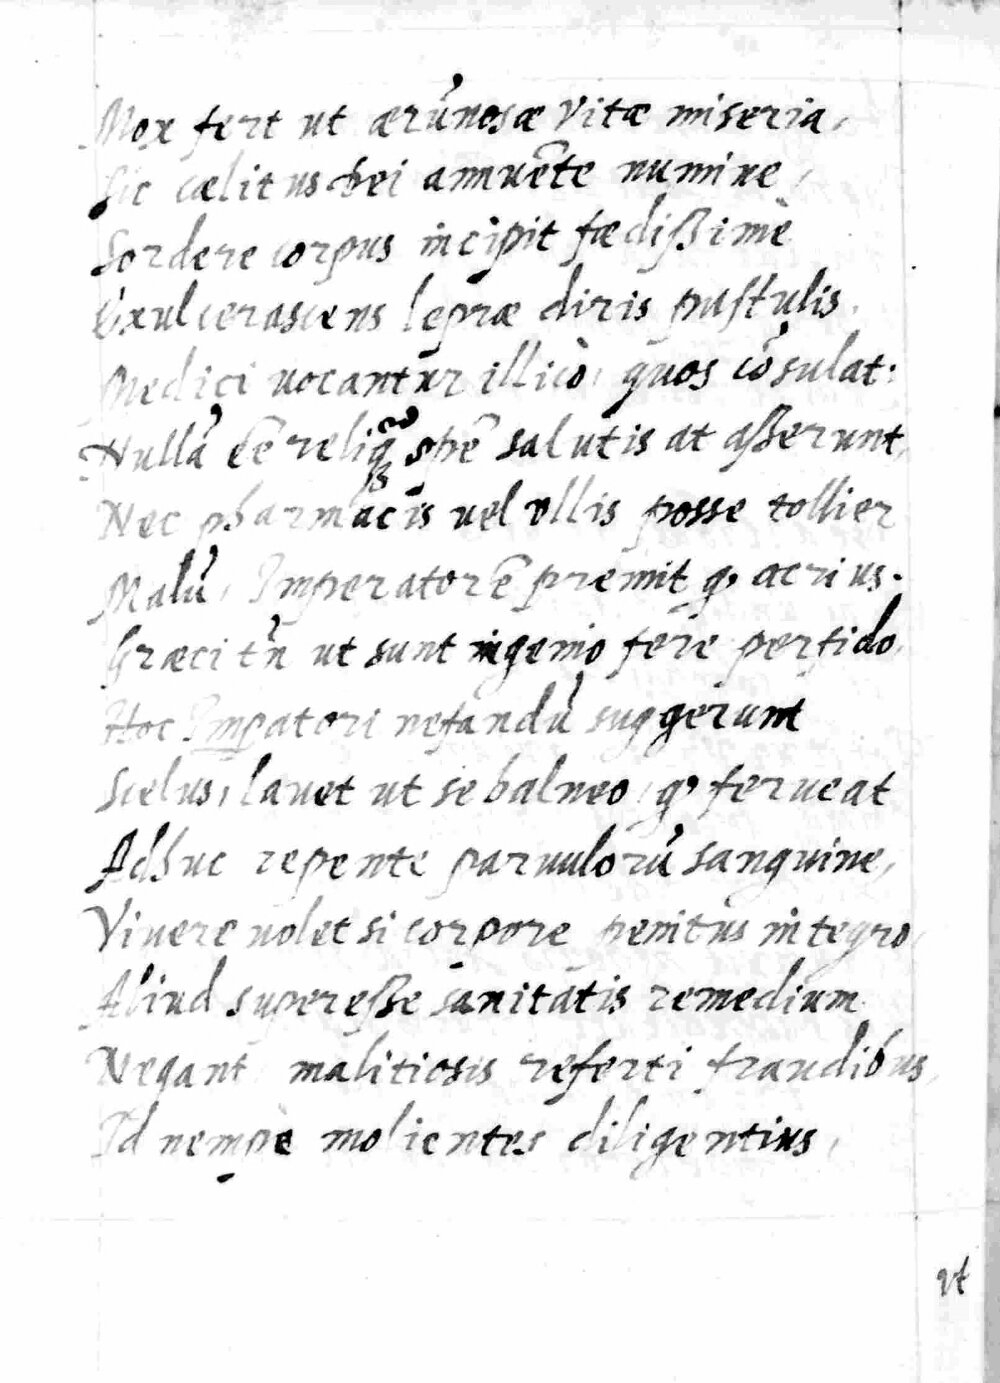 Mox fert ut ærũnosæ vitæ miseria,
Sic cælitus Dei annuẽte numine,
Sordere corpus incipit fædißimè
Exulcerascens lepræ diris pustulis.
Medici uocantur illicò, quos cõsulat:
Nullã eẽ spẽ salutis at aßerunt,
Nec pharmacis vel ullis posse tollier
Malũ, Imperatorẽ premit q, acrius.
Græci tñ ut sunt ingenio fere perfido,
Hoc Impatori nefandũ suggerunt
Scelus, lauet ut se balneo, q, ferueat
Adhuc repente paruulorũ sanguine,
Viuere uolet si corpore penitus integro,
Aliud supereße sanitatis remedium
Negant malitiosis referti fraudibus,
Id nempe molientes diligentius,
ut